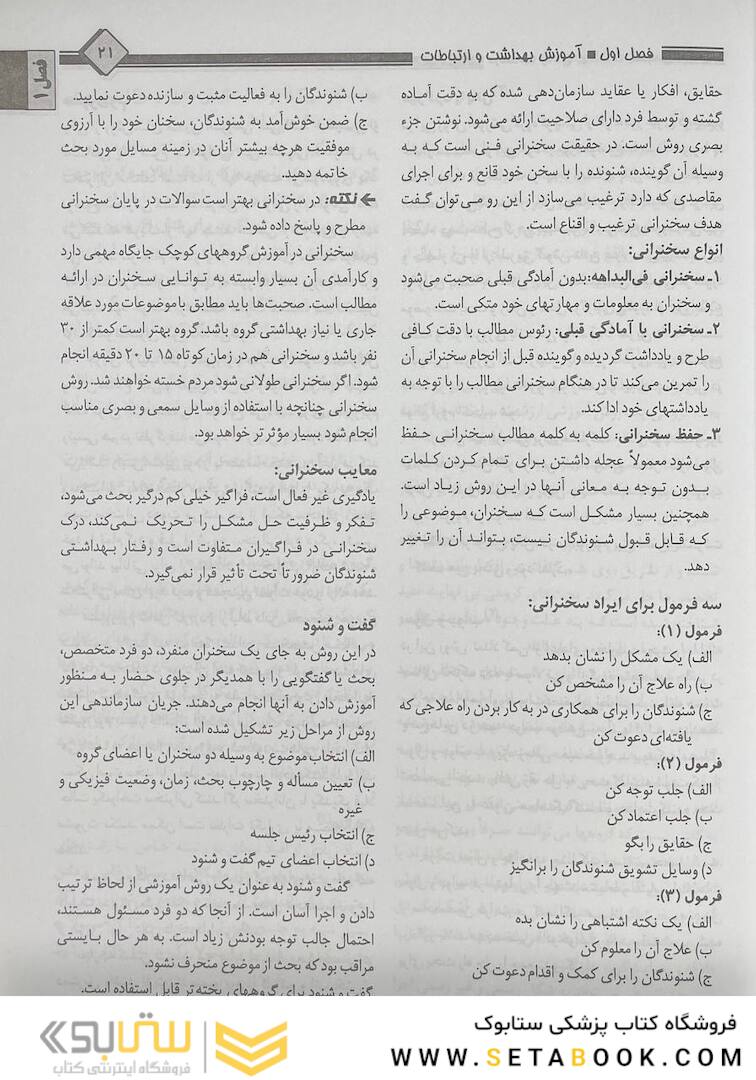 فصل اول ■ آموزش بهداشت و ارتباطات
۲۱
فصل ۱
حقایق، افکار یا عقاید سازمان‌دهی شده که به دقت آماده
گشته و توسط فرد دارای صلاحیت ارائه می‌شود. نوشتن جزء
بصری روش است. در حقیقت سخنرانی فنی است که به
وسیله آن گوینده، شنونده را با سخن خود قانع و برای اجرای
مقاصدی که دارد ترغیب می‌سازد از این رو می‌توان گفت
هدف سخنرانی ترغیب و اقناع است.
انواع سخنرانی:
۱ـ سخنرانی فی‌البداهه:بدون آمادگی قبلی صحبت می‌شود
و سخنران به معلومات و مهارتهای خود متکی است.
۲ـ سخنرانی با آمادگی قبلی: رئوس مطالب با دقت کافی
طرح و یادداشت گردیده و گوینده قبل از انجام سخنرانی آن
را تمرین می‌کند تا در هنگام سخنرانی مطالب را با توجه به
یادداشتهای خود ادا کند.
۳ـ حفظ سخنرانی: کلمه به کلمه مطالب سخنرانی حفظ
می‌شود معمولاً عجله داشتن برای تمام کردن کلمات
بدون توجه به معانی آنها در این روش زیاد است.
همچنین بسیار مشکل است که سخنران، موضوعی را
که قابل قبول شنوندگان نیست، بتواند آن را تغییر
دهد.
سه فرمول برای ایراد سخنرانی:
فرمول (۱):
الف) یک مشکل را نشان بدهد
ب) راه علاج آن را مشخص کن
ج) شنوندگان را برای همکاری در به کار بردن راه علاجی که
یافته‌ای دعوت کن
فرمول (۲):
الف) جلب توجه کن
ب) جلب اعتماد کن
ج) حقایق را بگو
د) وسایل تشویق شنوندگان را برانگیز
فرمول (۳):
الف) یک نکته اشتباهی را نشان بده
ب) علاج آن را معلوم کن
ج) شنوندگان را برای کمک و اقدام دعوت کن
ب) شنوندگان را به فعالیت مثبت و سازنده دعوت نمایید.
ج) ضمن خوش‌آمد به شنوندگان، سخنان خود را با آرزوی
موفقیت هرچه بیشتر آنان در زمینه مسایل مورد بحث
خاتمه دهید.
نکته: در سخنرانی بهتر است سوالات در پایان سخنرانی
مطرح و پاسخ داده شود.
سخنرانی در آموزش گروههای کوچک جایگاه مهمی دارد
و کارآمدی آن بسیار وابسته به توانایی سخنران در ارائه
مطالب است. صحبت‌ها باید مطابق با موضوعات مورد علاقه
جاری یا نیاز بهداشتی گروه باشد. گروه بهتر است کمتر از ۳۰
نفر باشد و سخنرانی هم در زمان کوتاه ۱۵ تا ۲۰ دقیقه انجام
شود. اگر سخنرانی طولانی شود مردم خسته خواهند شد. روش
سخنرانی چنانچه با استفاده از وسایل سمعی و بصری مناسب
انجام شود بسیار مؤثر تر خواهد بود.
معایب سخنرانی:
یادگیری غیر فعال است، فراگیر خیلی کم درگیر بحث می‌شود،
تفکر و ظرفیت حل مشکل را تحریک نمی‌کند، درک
سخنرانی در فراگیران متفاوت است و رفتار بهداشتی
شنوندگان ضرورتاً تحت تأثیر قرار نمی‌گیرد.
گفت و شنود
در این روش به جای یک سخنران منفرد، دو فرد متخصص،
بحث یا گفتگویی را با همدیگر در جلوی حضار به منظور
آموزش دادن به آنها انجام می‌دهند. جریان سازماندهی این
روش از مراحل زیر تشکیل شده است:
الف) انتخاب موضوع به وسیله دو سخنران یا اعضای گروه
ب) تعیین مسأله و چارچوب بحث، زمان، وضعیت فیزیکی و
غیره
ج) انتخاب رئیس جلسه
د) انتخاب اعضای تیم گفت و شنود
گفت و شنود به عنوان یک روش آموزشی از لحاظ ترتیب
دادن و اجرا آسان است. از آنجا که دو فرد مسئول هستند،
احتمال جالب توجه بودنش زیاد است. به هر حال بایستی
مراقب بود که بحث از موضوع منحرف نشود.
گفت و شنود برای گروههای پخته‌تر قابل استفاده است.
فروشگاه کتاب پزشکی ستابوک
WWW.SETABOOK.COM
ستابوک
فروشگاه اینترنتی کتاب